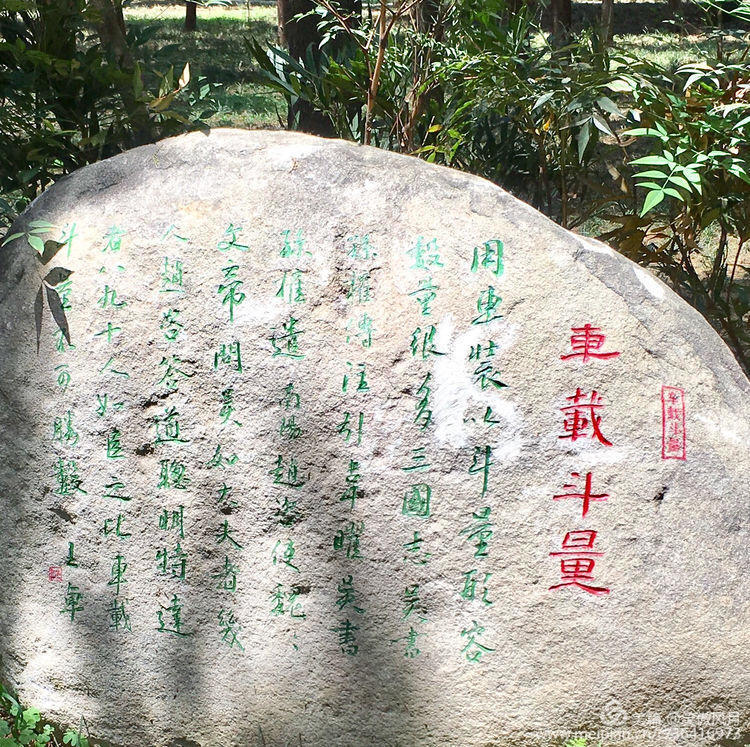 車載斗量
用車裝以斗量形容
數量很多三國志吳書
孫權傳注引韋曜吳書
孫權遣南陽趙咨使魏〻
文帝問吳如大夫者幾
人趙咨答道聰明特達
者八九十人如臣之比車載
斗量不可勝數
美篇
www.meipian.cn/936416973